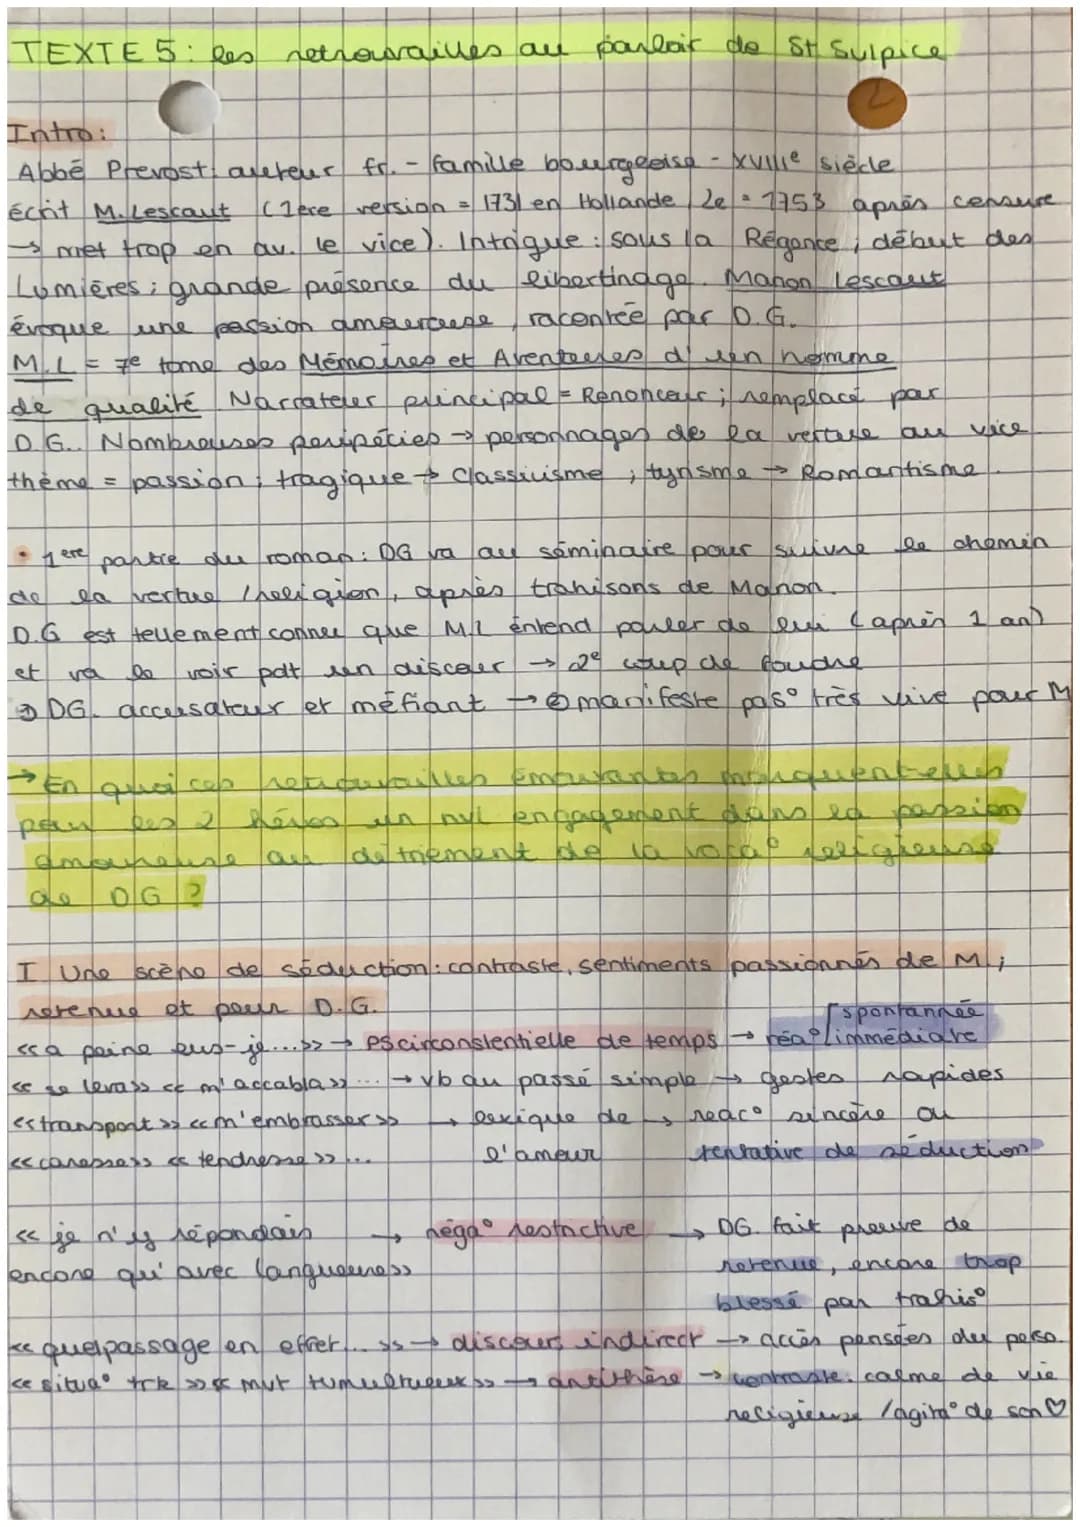 TEXTE 5 : les retrouvailles au parloir de St Sulpice
2
Intro :
Abbé Prevost : auteur fr. - famille bourgeoise - XVIIIe siècle
écrit M. Lescaut (1ère version = 1731 en Hollande, 2e = 1753 après censure
→ met trop en av. le vice). Intrigue : sous la Régence ; début des
Lumières ; grande présence du libertinage. Manon Lescaut
évoque une passion amoureuse, racontée par D.G.
M.L = 7e tome des Mémoires et Aventures d'un homme
de qualité. Narrateur principal = Renoncour ; remplacé par
D.G.. Nombreuses péripéties → personnages de la vertue au vice
thème = passion ; tragique → Classiisme ; lyrisme → Romantisme.
• 1ère partie du roman : DG va au séminaire pour suivre le chemin
de la vertue / religion, après trahisons de Manon.
D.G est tellement connu que M.L entend parler de lui (après 1 an)
et va le voir pdt un discour → 2e coup de foudre
DG. accusateur et méfiant → manifeste pas° très vive pour M
→ En quoi ces retrouvailles émouvantes marquent-elles
pour les 2 héros un nvl engagement dans la passion
amoureuse au détriement de la voca° religieuse
de DG ?
I Une scène de séduction : contraste, sentiments passionnés de M ;
retenue et peur D.G.
[spontannée
<< a peine eus-je...>> → PS circonstentielle de temps → réa° [immédiate
<< se leva >> << m'accabla >> ... → vb au passé simple → gestes rapides
<< transport >> << m'embrasser >> → lexique de → réac° sincère ou
<< caresses >> << tendresse >> ... l'amour tentative de séduction
<< je n'y répondais → néga° restrictive → DG. fait preuve de
encore qu'avec langueur >> retenue, encore trop
blessé par trahis°
<< quel passage en effet... >> → discours indirect → accès pensées du perso.
<< situa° trk >> << mvt tumultueux >> → antithèse → contraste : calme de vie
religieuse / agita° de son ♡